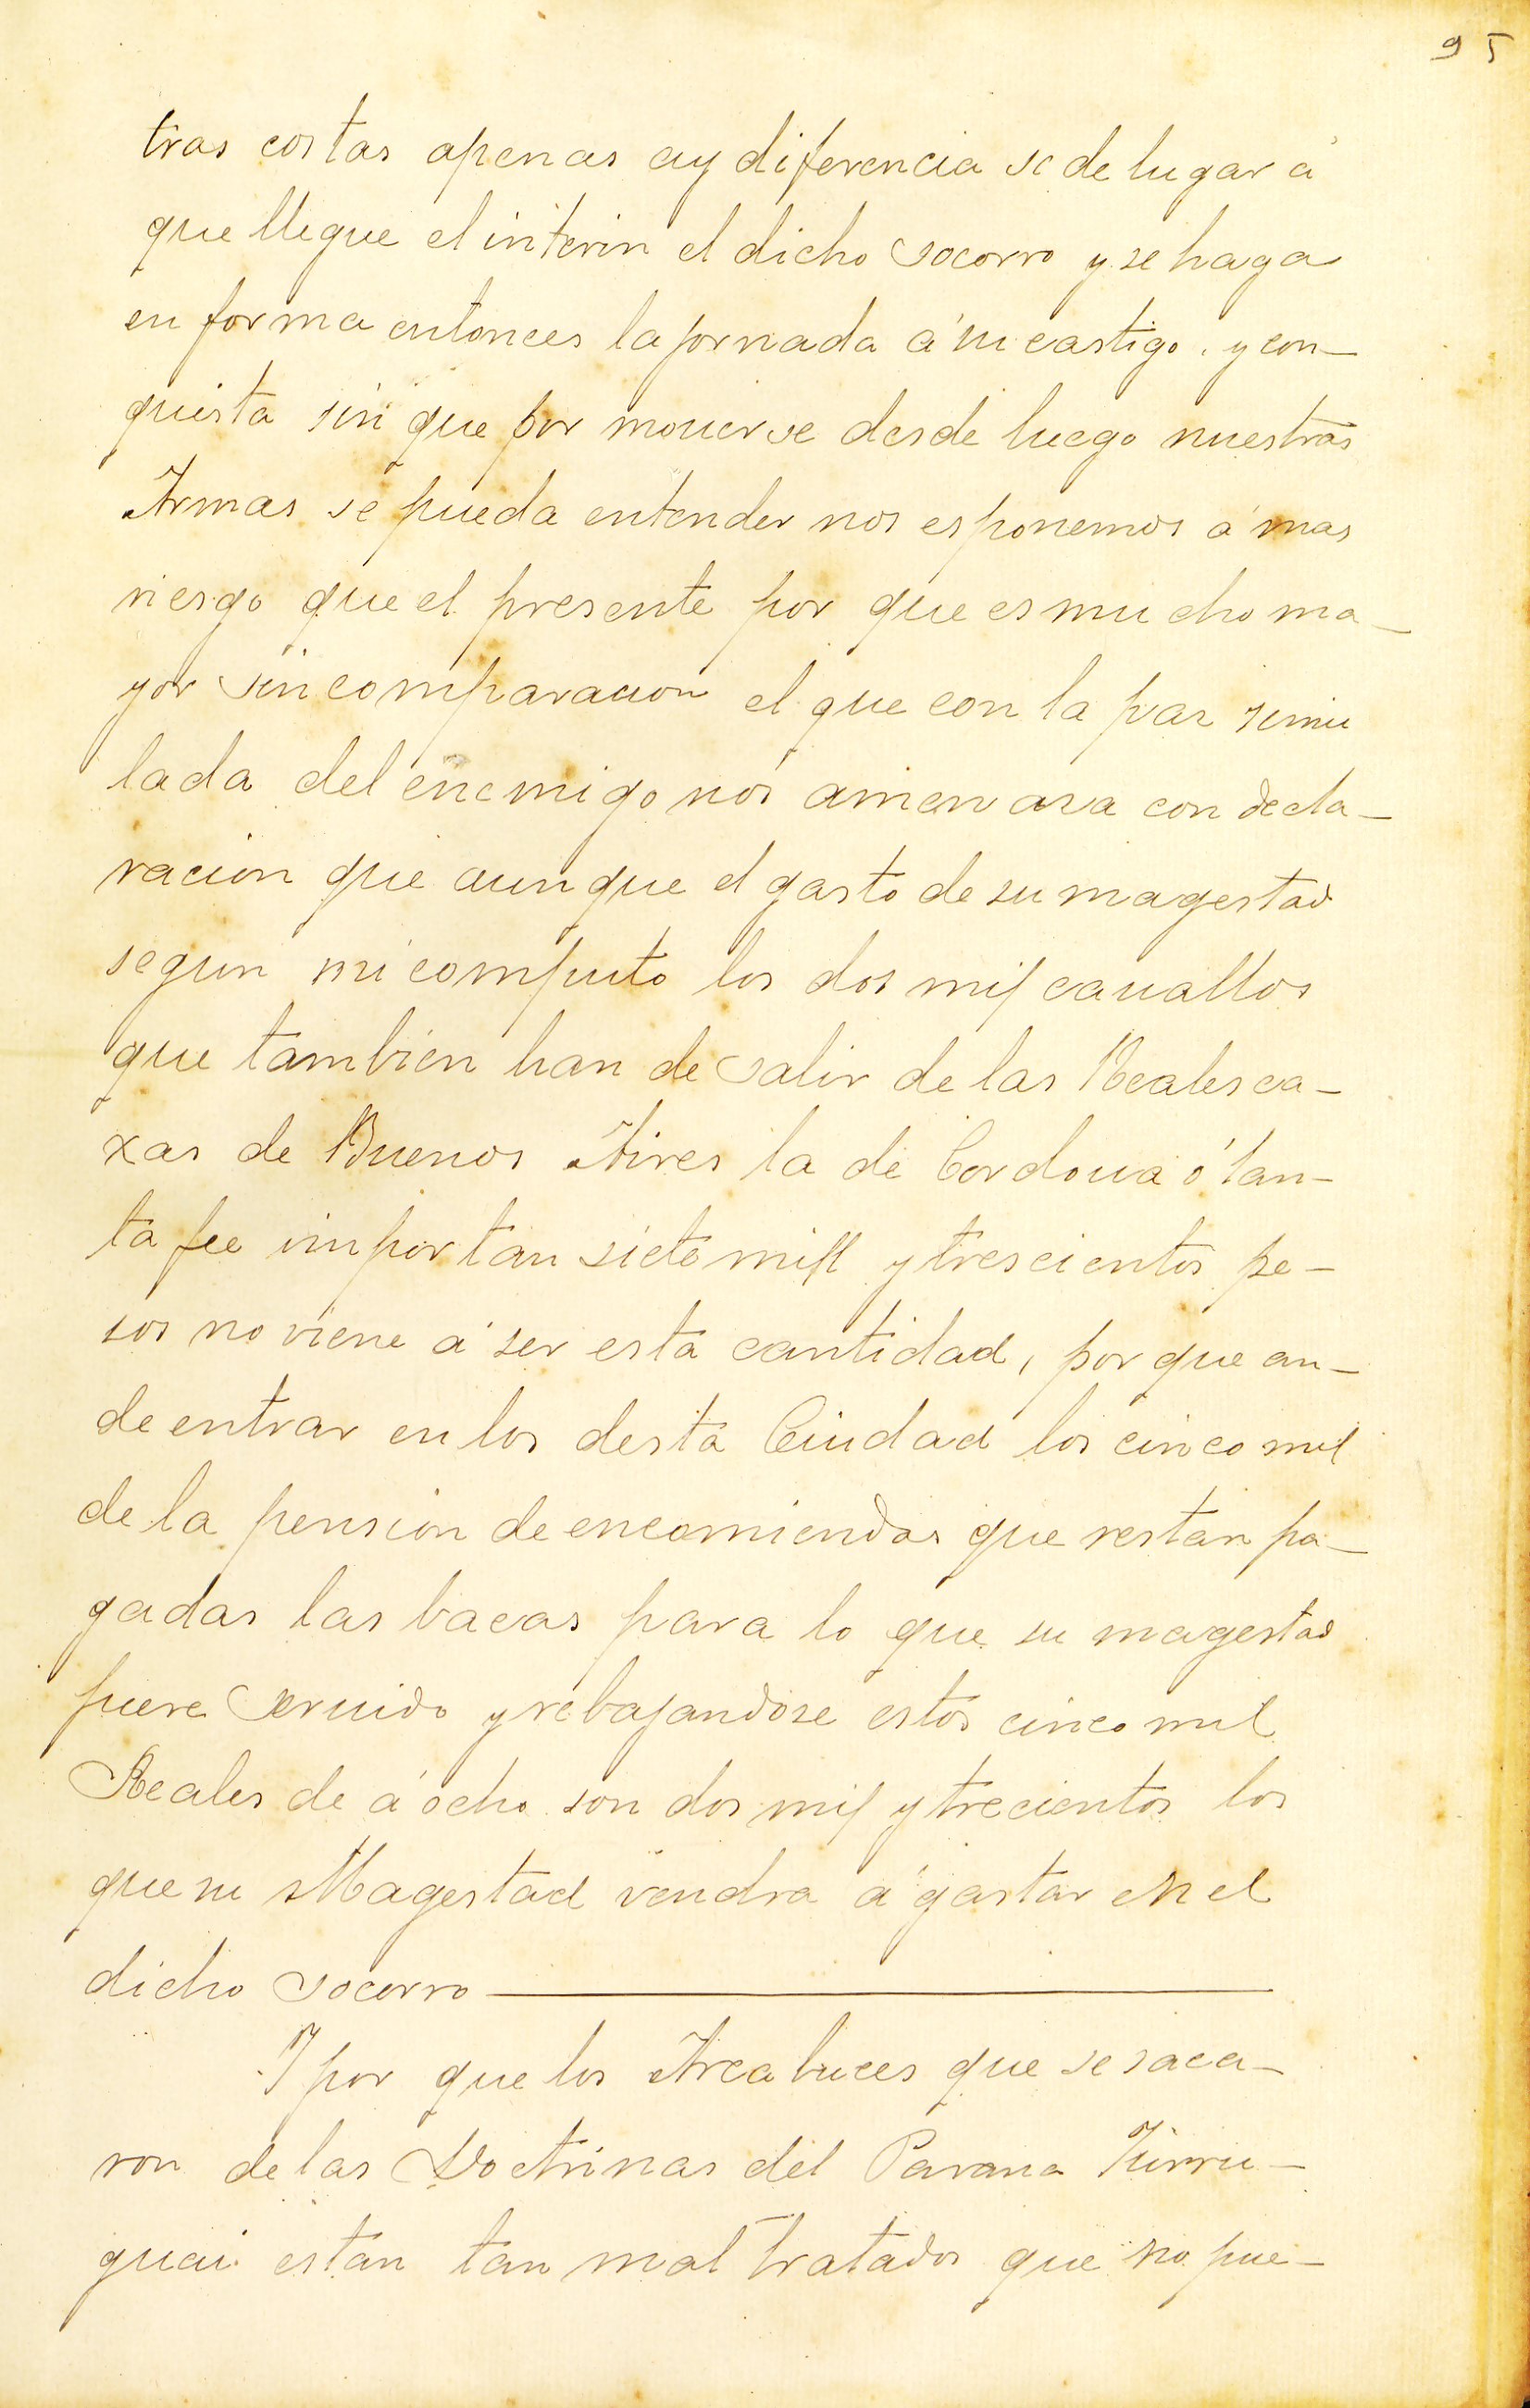 95
tras costas apenas ay diferencia se de lugar á
que llegue el interin el dicho socorro y se haga
en forma entonces la jornada á su castigo. y con-
quista sin que por mouerse desde luego nuestras
Armas se pueda entender nos esponemos á mas
riesgo que el presente por que es mucho ma-
yor sin comparacion el que con la paz simu
lada del enemigo nos amenaza con decla-
racion que aunque el gasto de su magestad
segun mi computo los dos mil cauallos
que tambien han de salir de las Reales ca-
xas de Buenos Aires la de Cordoua ó San-
ta fee importan siete mill y trescientos pe-
sos no viene á ser esta cantidad, por que an-
de entrar en los desta Ciudad los cinco mil
de la pension de encomiendas que restan pa-
gadas las bacas para lo que su magestad
fuere seruido y rebajandose estos cinco mil
Reales de á ocho son dos mil y trecientos los
que su Magestad vendra á gastar en el
dicho socorro
Y por que los Arcabuces que se saca-
ron de las Doctrinas del Parana
guai estan tan mal tratados que no pue-